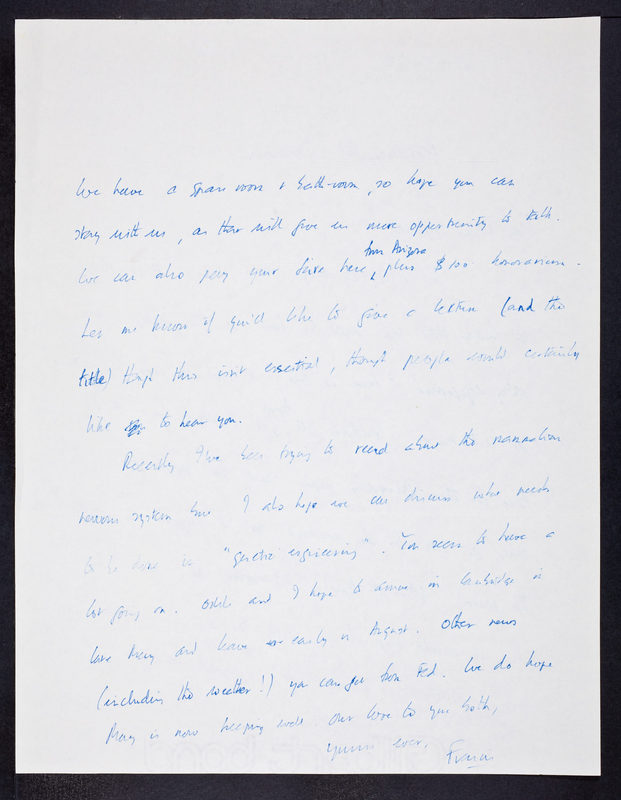 We have a spare room & bath-room, so hope you can
stay with us, as that will give us more opportunity to talk.
from Arizona
We can also pay your fare here, plus $100 honorarium.
Let me know if you'd like to give a lecture (and the
title) though this isn't essential, though people would certainly
like to hear you.
Recently I've been trying to read about the mammalian
nervous system but I also hope we can discuss what needs
to be done in "genetic engineering". You seem to have a
lot going on. Odile and I hope to arrive in Cambridge in
late May and leave early in August. Other news
(including the weather!) you can get from Ted. We do hope
May is now keeping well. Our love to you both,
yours ever,
Francis